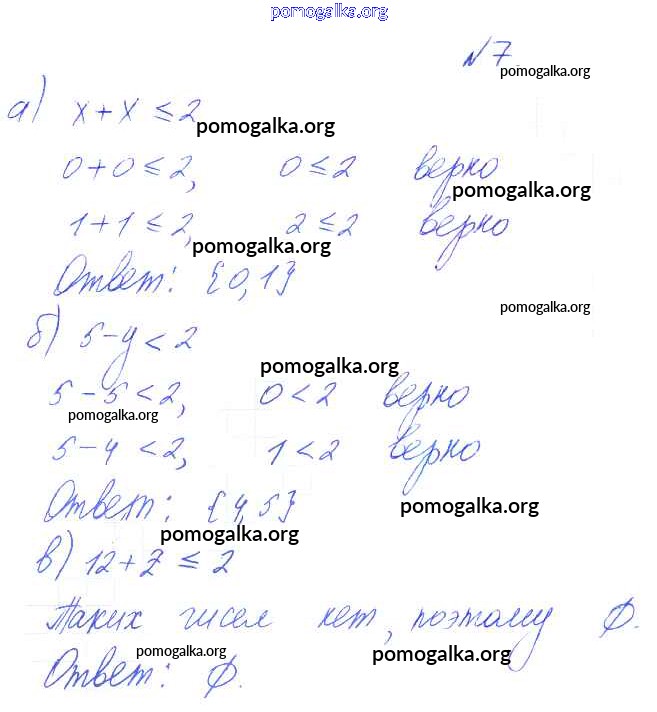 pomogalka.org
№7
pomogalka.org
а) x + x ≤ 2
pomogalka.org
0 + 0 ≤ 2, 0 ≤ 2 верно
pomogalka.org
1 + 1 ≤ 2, 2 ≤ 2 верно
pomogalka.org
Ответ: {0, 1}
pomogalka.org
б) 5 - y < 2
pomogalka.org
5 - 5 < 2, 0 < 2 верно
pomogalka.org
5 - 4 < 2, 1 < 2 верно
Ответ: {4, 5}
pomogalka.org
pomogalka.org
в) 12 + z ≤ 2
Таких чисел нет, поэтому ∅.
pomogalka.org
pomogalka.org
Ответ: ∅.